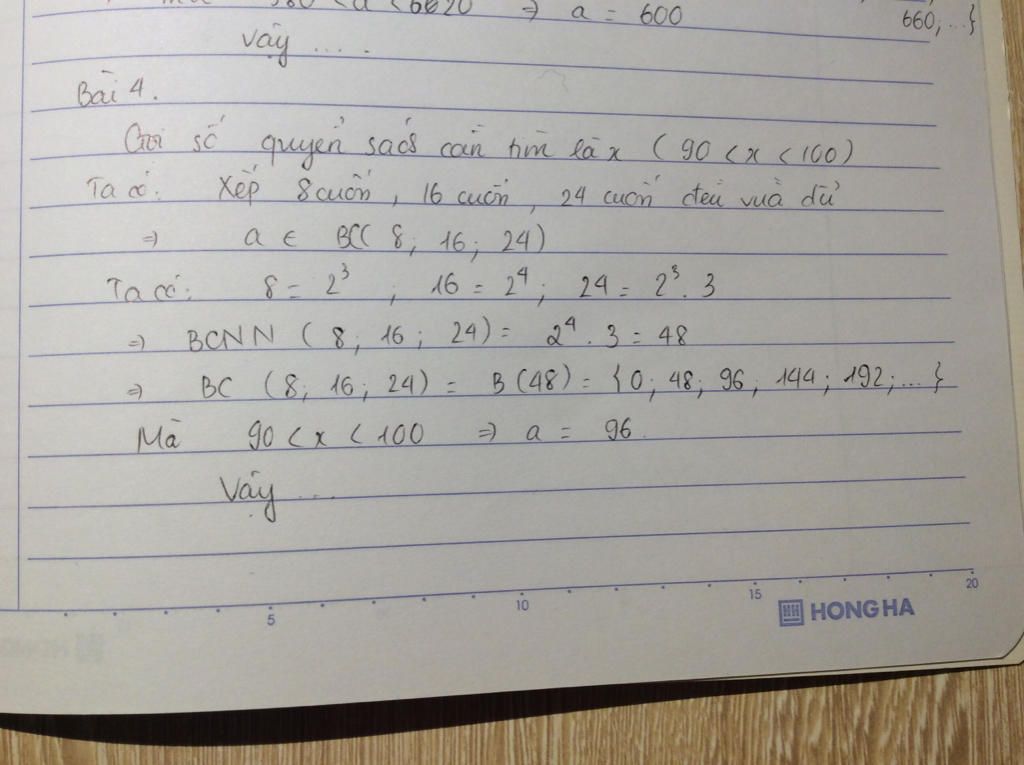 580 < a < 6620 ⇒ a = 600 660; ...}
Vậy ....
Bài 4.
Gọi số quyển sách cần tìm là x ( 90 < x < 100)
Ta có: Xếp 8 cuốn , 16 cuốn , 24 cuốn đều vừa đủ
⇒ a ∈ BC( 8 ; 16 ; 24)
Ta có: 8 = 2³ ; 16 = 2⁴ ; 24 = 2³ . 3
⇒ BCNN ( 8 ; 16 ; 24) = 2⁴ . 3 = 48
⇒ BC (8; 16 ; 24) = B(48) = {0; 48; 96; 144; 192; ... }
Mà 90 < x < 100 ⇒ a = 96.
Vậy ...
5 10 15 20
HONG HA